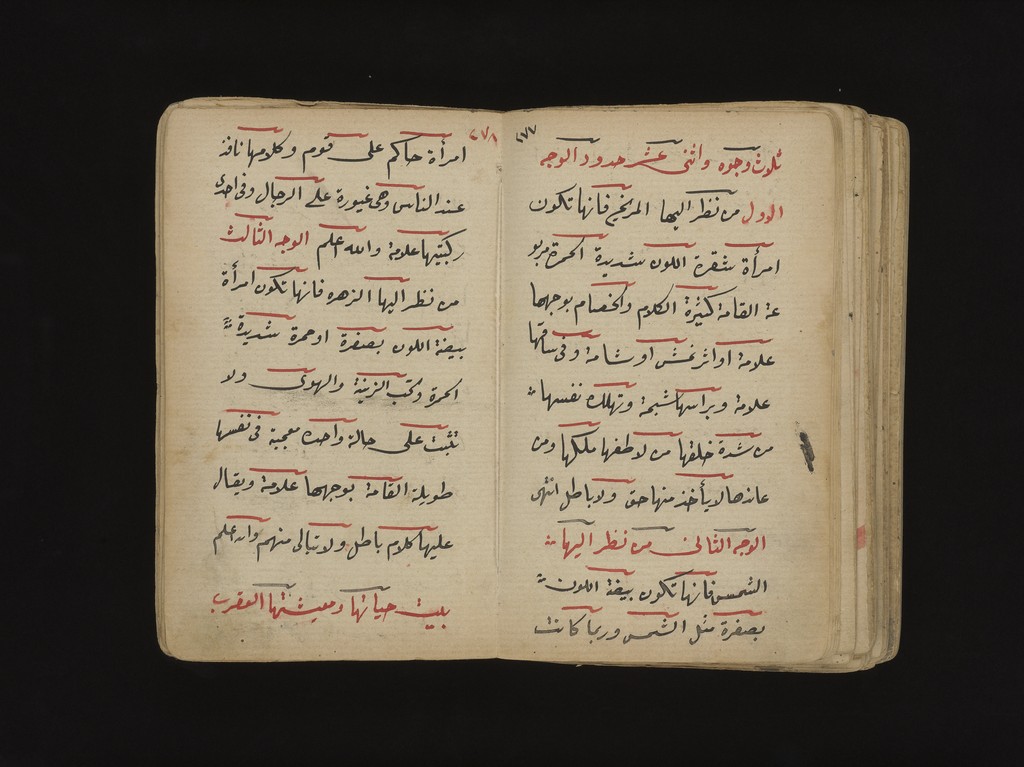 ٢٧٧
ثلوث وجوه واثنى عشر حدود الوجه
الاول من نظر اليها المريخ فانها تكون
امرأة شقرة اللون شديدة الحمرة مربو
عة القامة كثيرة الكلام والخصام بوجهها
علامة او اثر نمش او شامة وفى ساقها
علامة وبراسها شجة وتهلك نفسها
من شدة خلقها من لاطفها ملكها ومن
عاندها لا يأخذ منها حق ولا باطل انتهى
الوجه الثانى من نظر اليها
الشمس فانها تكون بيضة اللون
بصفرة مثل الشمس وربما كانت
٢٧٨
امرأة حاكم على قوم وكلامها نافذ
عند الناس وهى غيورة على الرجال وفى احدى
ركبتيها علامة والله اعلم الوجه الثالث
من نظر اليها الزهره فانها تكون امرأة
بيضة اللون بصفرة او حمرة شديدة
الحمرة وتحب الزينة والهوى ولا
تثبت على حالة واحده معجبة فى نفسها
طويلة القامة بوجهها علامة ويقال
عليها كلام باطل ولا تبالى منهم والله اعلم
بيت حياتها ومعيشتها العقرب